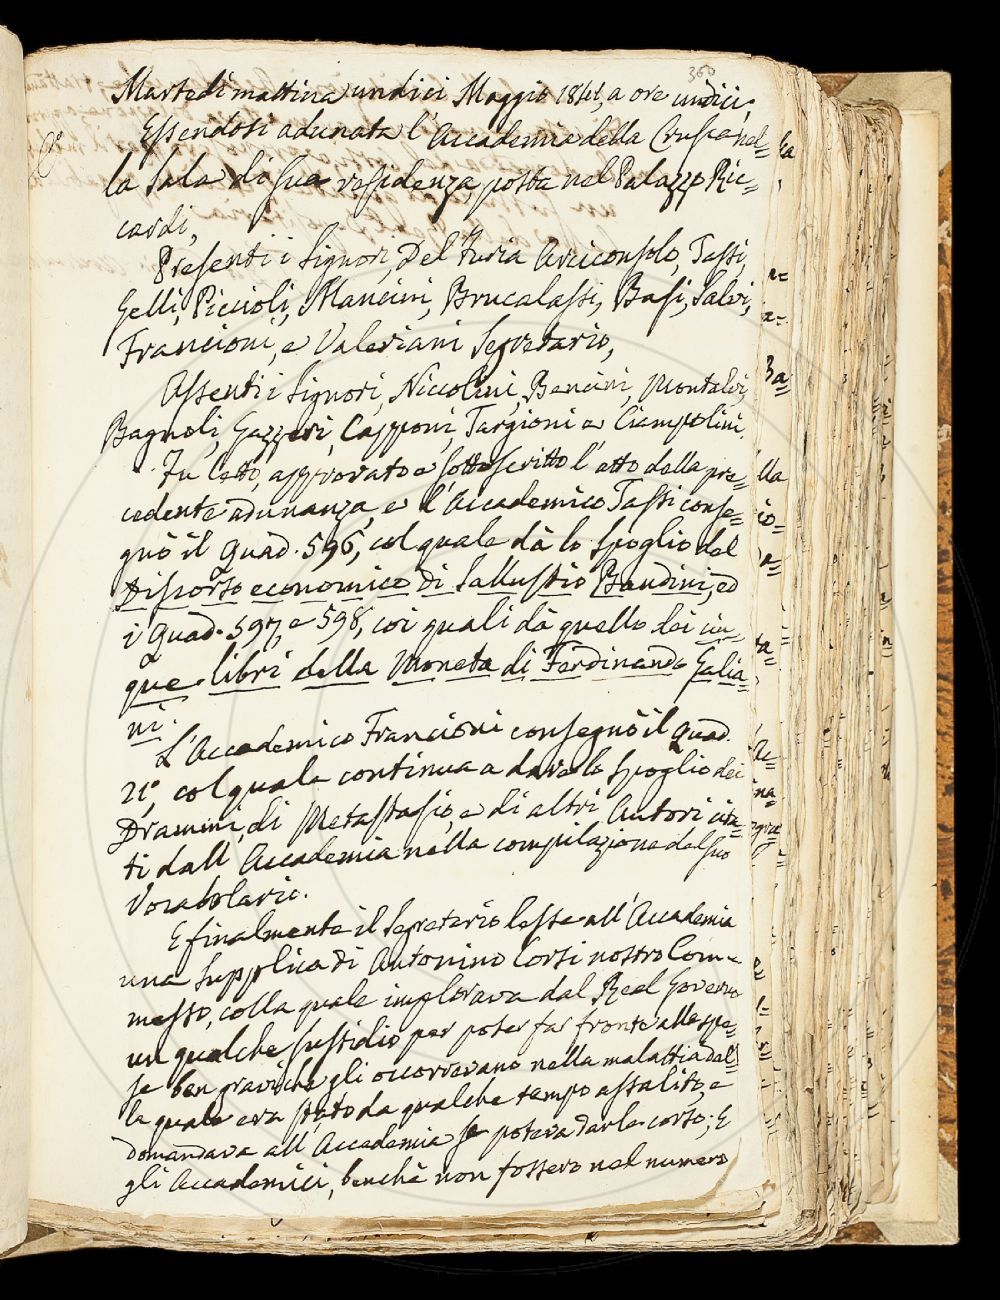 360
Martedì mattina undici Maggio 1841, a ore undici,
Essendosi adunata l'Accademia della Crusca nel=
la Sala di sua residenza, posta nel Palazzo Ric=
cardi,
Presenti i Signori, Del Furia Arciconsolo, Tassi,
Gelli, Piccioli, Mancini, Brucalassi, Basi, Salvi,
Francioni, e Valeriani Segretario,
Assenti i Signori, Niccolini, Bencini, Montalvi,
Bagnoli, Gazzeri, Capponi, Targioni e Ciampolini.
Fu letto, approvato e sottoscritto l'atto della pre=
cedente adunanza, e l'Accademico Tassi conse=
gnò il Quad. 596, col quale dà lo spoglio del
Discorso economico di Sallustio Bandini, ed
i Quad. 597, e 598, coi quali dà quello dei cin=
que libri della Moneta di Ferdinando Galia=
ni.
L'Accademico Francioni consegnò il Quad.
21°, col quale continua a dare lo spoglio dei
Drammi, di Metastasio, e di altri Autori cita=
ti dall'Accademia nella compilazione del suo
Vocabolario.
E finalmente il Segretario lesse all'Accademia
una supplica di Antonino Corsi nostro Com=
messo, colla quale implorava dal Real Governo
un qualche sussidio per poter far fronte alle spe=
se ben gravi che gli occorrevano nella malattia dal=
la quale era stato da qualche tempo assalito, e
domandava all'Accademia se poteva darle corso; E
gli Accademici, benchè non fossero nel numero